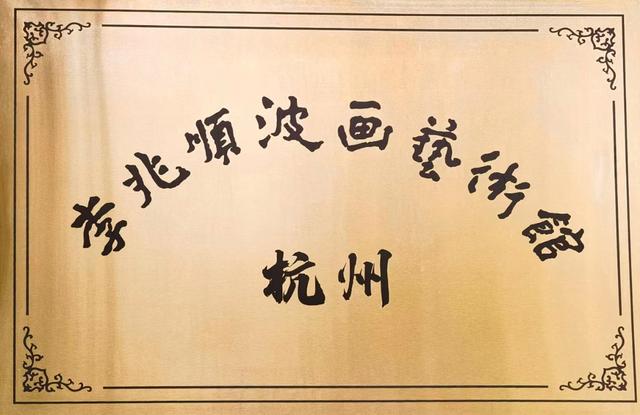 李兆順波画藝術館
杭州